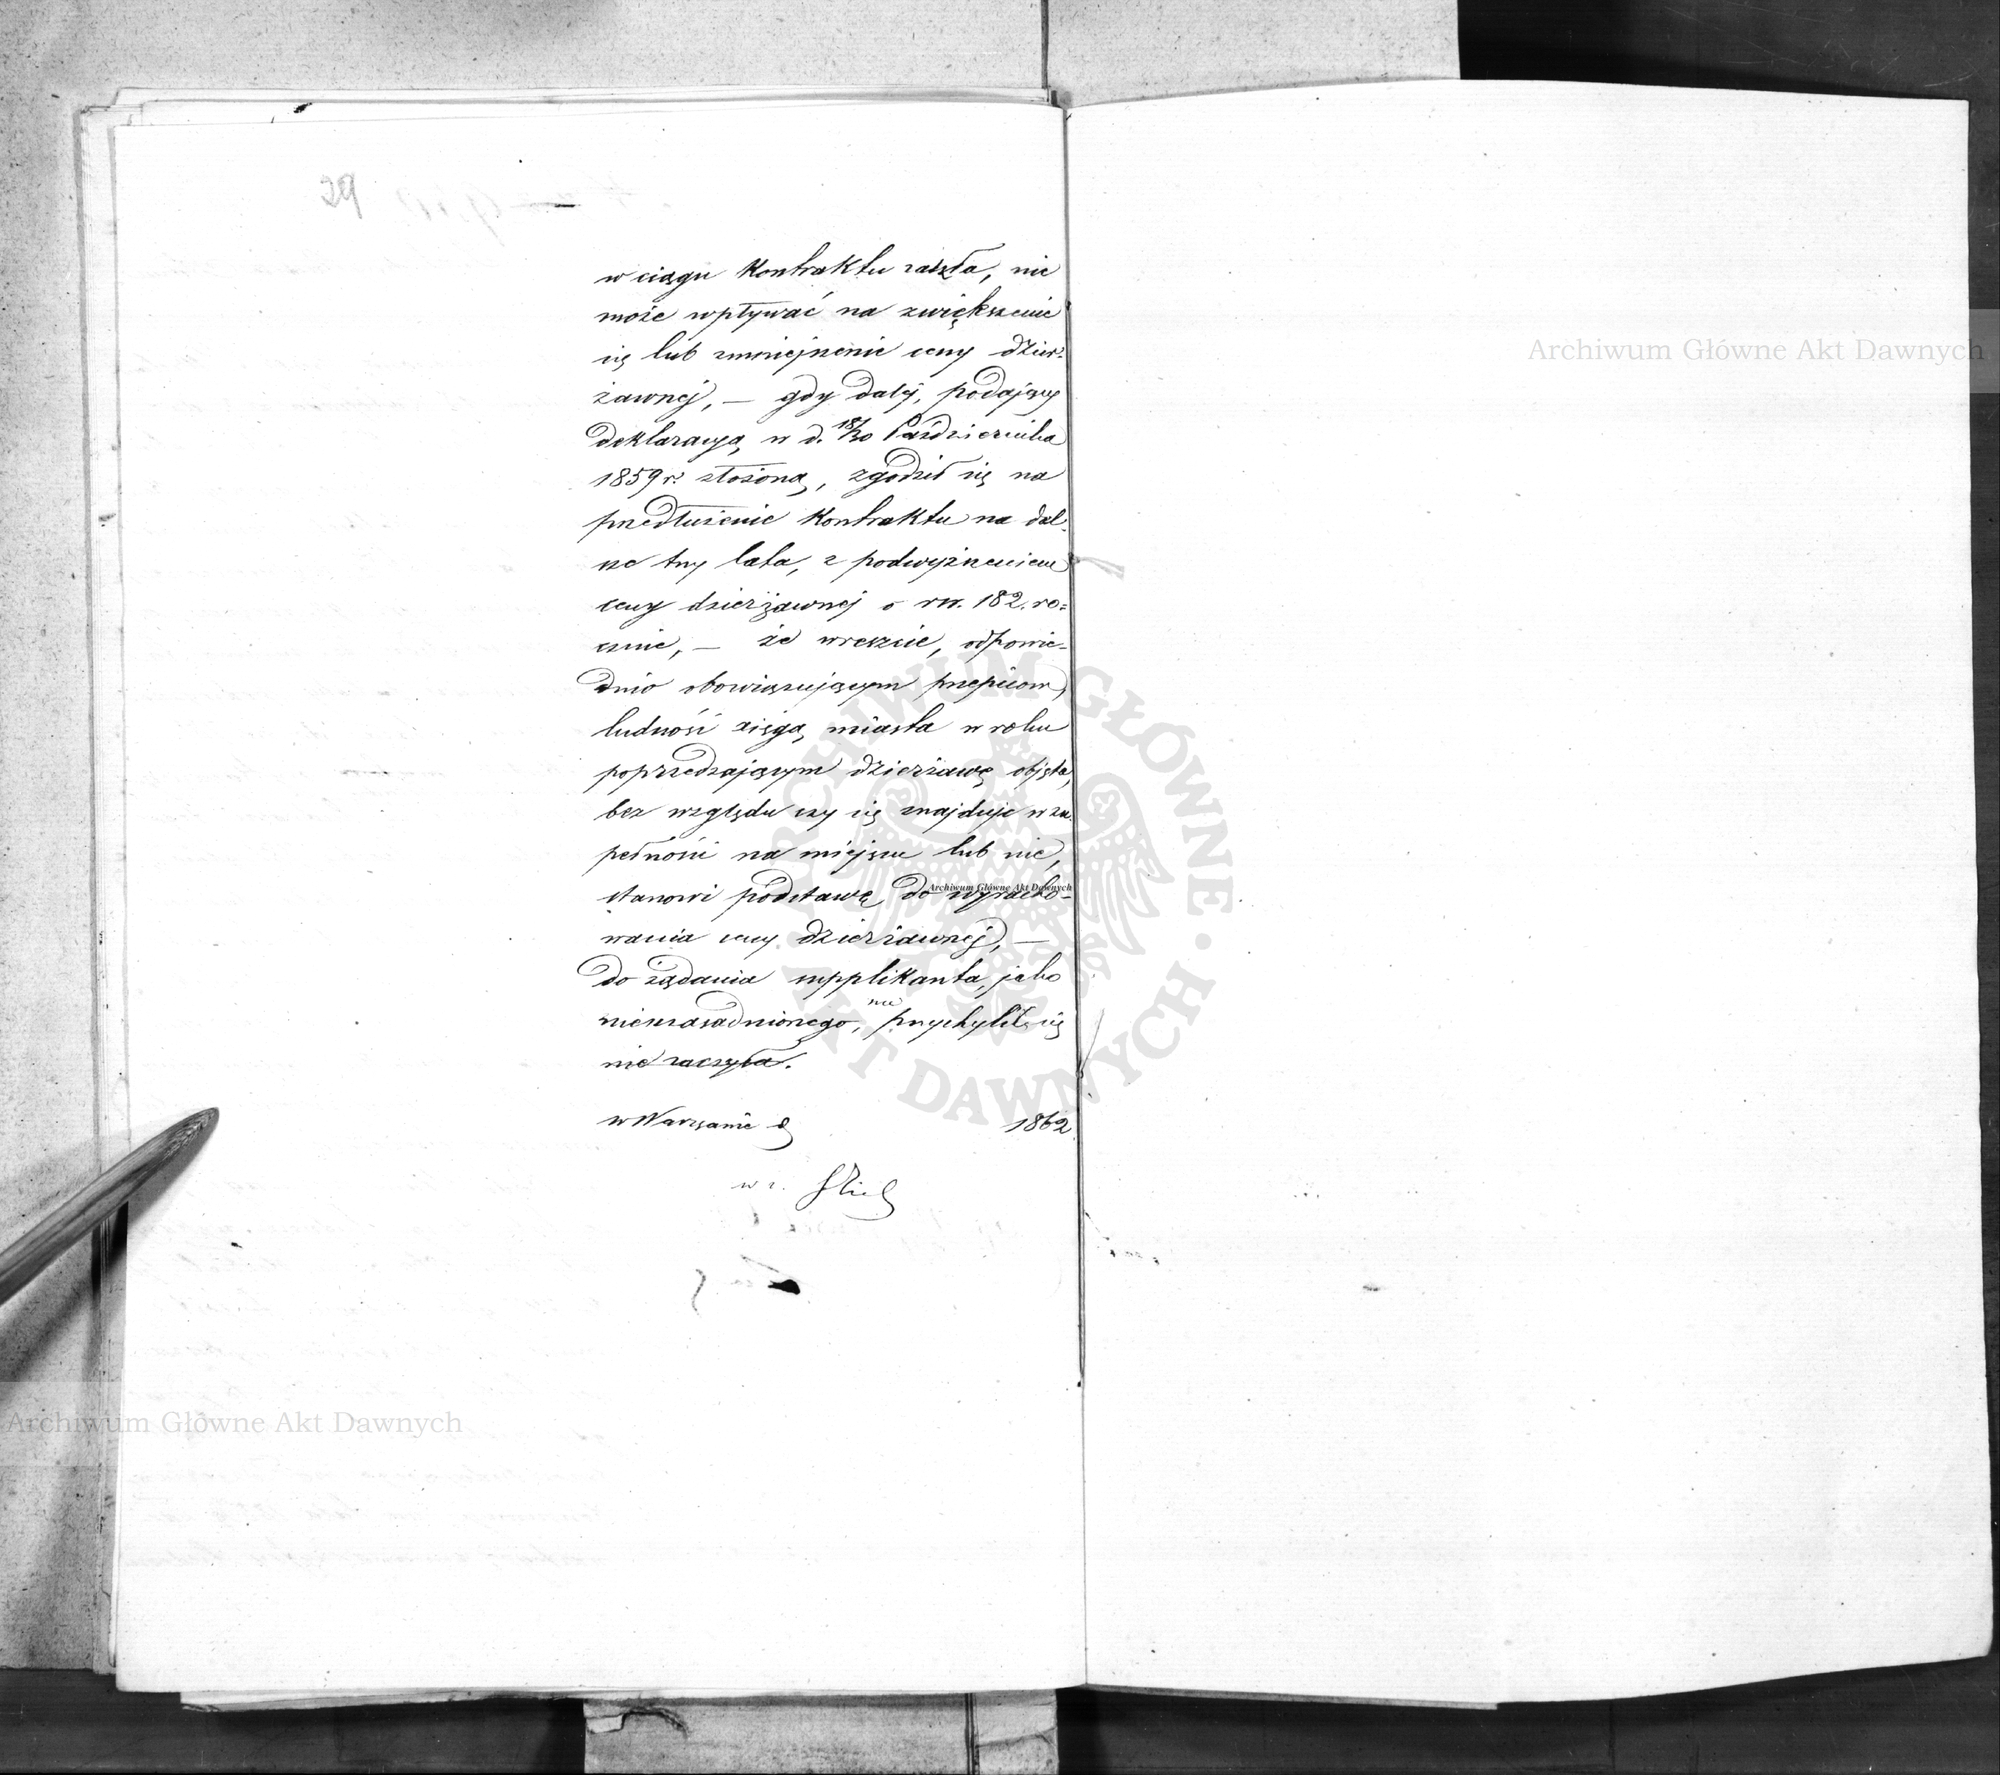 w ciągu Kontraktu zaszła, nie
może wpływać na zwiększenie
się lub zmniejszenie ceny dzier-
żawnej, — gdy dalej, podający
deklaracyą, w d. 18/30 Października
1859 r. złożoną, zgodził się na
przedłużenie Kontraktu na dal-
sze trzy lata, z podwyższeniem
ceny dzierżawnej o rsr. 182. ro=
cznie, — że wreszcie, odpowie-
dnio obowiązującym przepisom,
ludność księgą miasta w roku
poprzedzającym dzierżawę objęta,
bez względu czy się znajduje w zu-
pełności na miejscu lub nie,
stanowi podstawę do wyracho-
wania ceny dzierżawnej, —
do żądania supplikanta, jako
nieuzasadnionego, nie przychyliła się
nie raczyła.
w Warszawie d 1862
w z.
Archiwum Główne Akt Dawnych
Archiwum Główne Akt Dawnych
Archiwum Główne Akt Dawnych
ARCHIWUM GŁÓWNE · AKT DAWNYCH ·